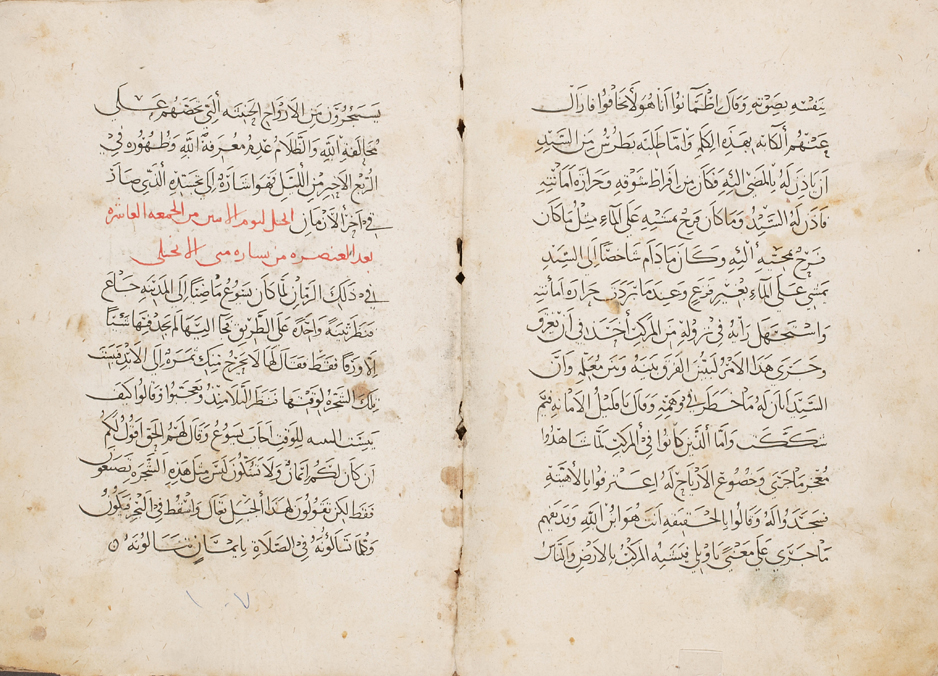 نفسه بصوته وقال اطمانوا انا هو لا تخافوا فازال
عنهم الكابه بهذه الكلم واما طلبة بطرس من السيد
ان ياذن له بالمضي اليه فكان من افراط شوقه وحرارة امانته
فاذن له السيد وما كان فرح بمشيه على الماء مثل ما كان
فرح بمجيه اليه وكان ما دام شاخصا الى السيد
يمشي على الماء بغير فزع وعندما تردت حرارة امانته
واستجهل رايه في نزوله من المركب اخذ في ان يغرق
وجرى هذا الامر ليتبين الفرق بينه وبين معلمه وان
السيد ابان له ما خطر في وهمه وقال يا قليل الامانه فيم
شككت واما الذين كانوا في المركب لما شاهدوا
معجز ما جرى وخضوع الارياح له اعترفوا بالاهيته
فسجدوا له وقالوا بالحقيقه انت هو ابن الله
ما جرى على معنى تاويل فيشبه المركب بالارض والناس
يستجيرون من الارواح الخبيثه التي تحضهم على
مخالفة الله والظلام عدم معرفة الله وظهوره في
الربع الاخير من الليل فهو اشارة الى تجسده الذي صار
في اخر الازمان الانجيل ليوم الاثنين من الجمعه العاشره
بعد العنصره من بشاره متى الانجيلي
في ذلك الزمان لما كان يسوع ماضيا الى المدينه جاع
فنظر تينة واحدة على الطريق فجا اليها لم يجد فيها شيا
الا ورقا فقط فقال لها لا يخرج منك ثمرة الى الابد فيبست
تلك الشجره لوقتها فنظر التلاميذ وتعجبوا وقالوا كيف
يبست التينه للوقت اجاب يسوع وقال لهم الحق اقول لكم
ان كان لكم ايمان ولا تشكون ليس مثل هذه الشجره تصنعون
فقط لكن تقولون لهذا الجبل تعال واسقط في البحر فيكون
وكلما تسالونه في الصلاة بايمان تنالونه
١٠٧